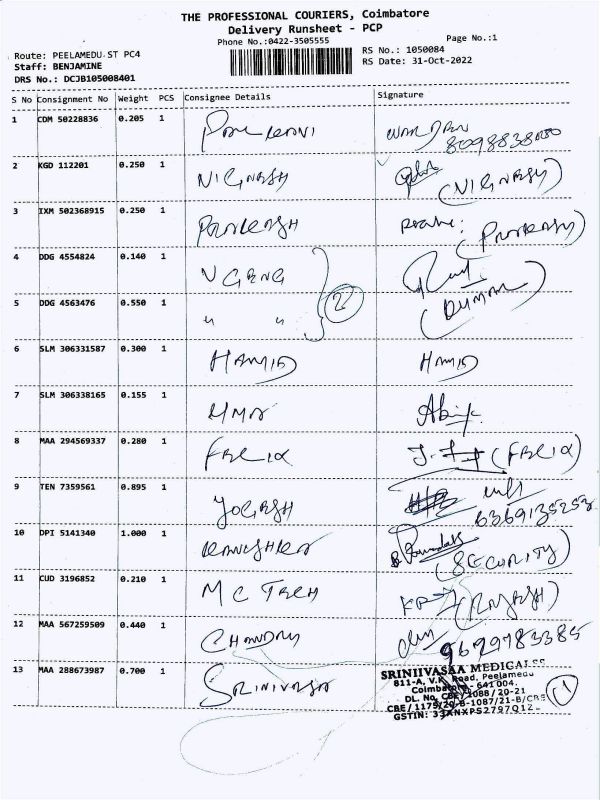 THE PROFESSIONAL COURIERS, Coimbatore
Delivery Runsheet - PCP
Phone No.:0422-3505555
Page No.:1
Route: PEELAMEDU ST PC4
RS No.: 1050084
Staff: BENJAMINE
RS Date: 31-Oct-2022
DRS No.: DCJB105008401
S No Consignment No Weight PCS Consignee Details Signature
1 COM 50228836 0.205 1
8098838000
2 KGD 112201 0.250 1 VIGNESH (VIGNESH)
3 IXM 502368915 0.250 1
4 DDG 4554824 0.140 1 VGENG
2
5 DDG 4563476 0.550 1 " "
6 SLM 306331587 0.300 1 HAMID HAMID
7 SLM 306338165 0.155 1
8 MAA 294569337 0.280 1 FELIX (FELIX)
9 TEN 7359561 0.895 1 YOGESH
6369135253
10 DPI 5141340 1.000 1 (SECURITY)
11 CUD 3196852 0.210 1 MC TECH (RAJESH)
12 MAA 567259509 0.440 1 CHANDRU
9629783385
13 MAA 288673987 0.700 1 SRINIVASA
SRINIIVASAA MEDICALSS
811-A, V.K. Road, Peelamedu
Coimbatore - 641 004.
DL. No. CBE/1088/20-21
CBE/1175/20-B-1087/21-B/CBE
GSTIN: 33ANXPS2797Q1Z